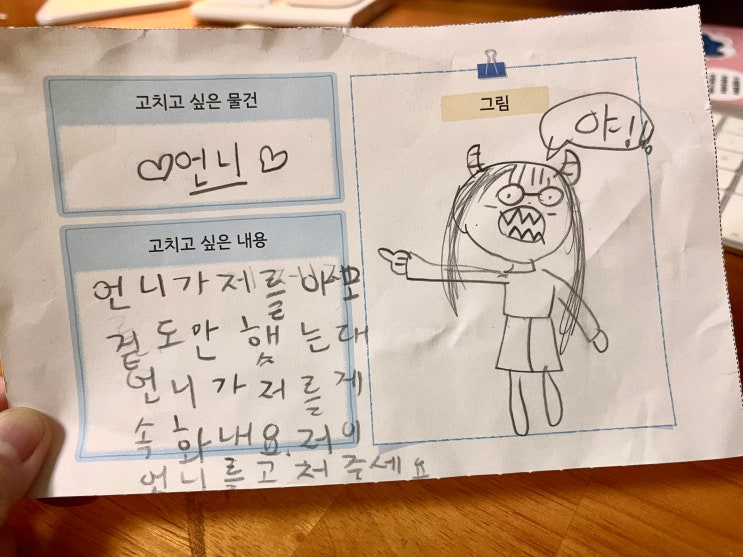 고치고 싶은 물건
♡언니♡
고치고 싶은 내용
언니가 제를
겉도만 했는대
언니가 저를 게
속 화내요. 저이
언니를 고쳐 주세요
그림
야!!